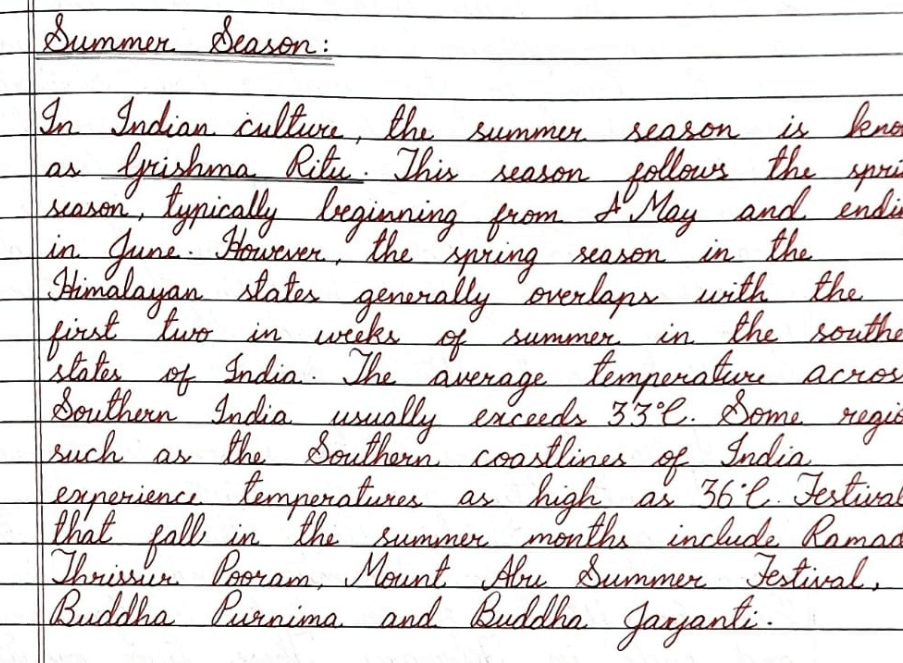 Summer Season:
In Indian culture, the summer season is kno
as Grishma Ritu. This season follows the spri
season, typically beginning from May and endin
in June. However, the spring season in the
Himalayan states generally overlaps with the
first two in weeks of summer in the southe
states of India. The average temperature across
Southern India usually exceeds 33°C. Some regio
such as the Southern coastlines of India
experience temperatures as high as 36°C. Festival
that fall in the summer months include Ramad
Thrissur Pooram, Mount Abu Summer Festival,
Buddha Purnima and Buddha Jaryanti.